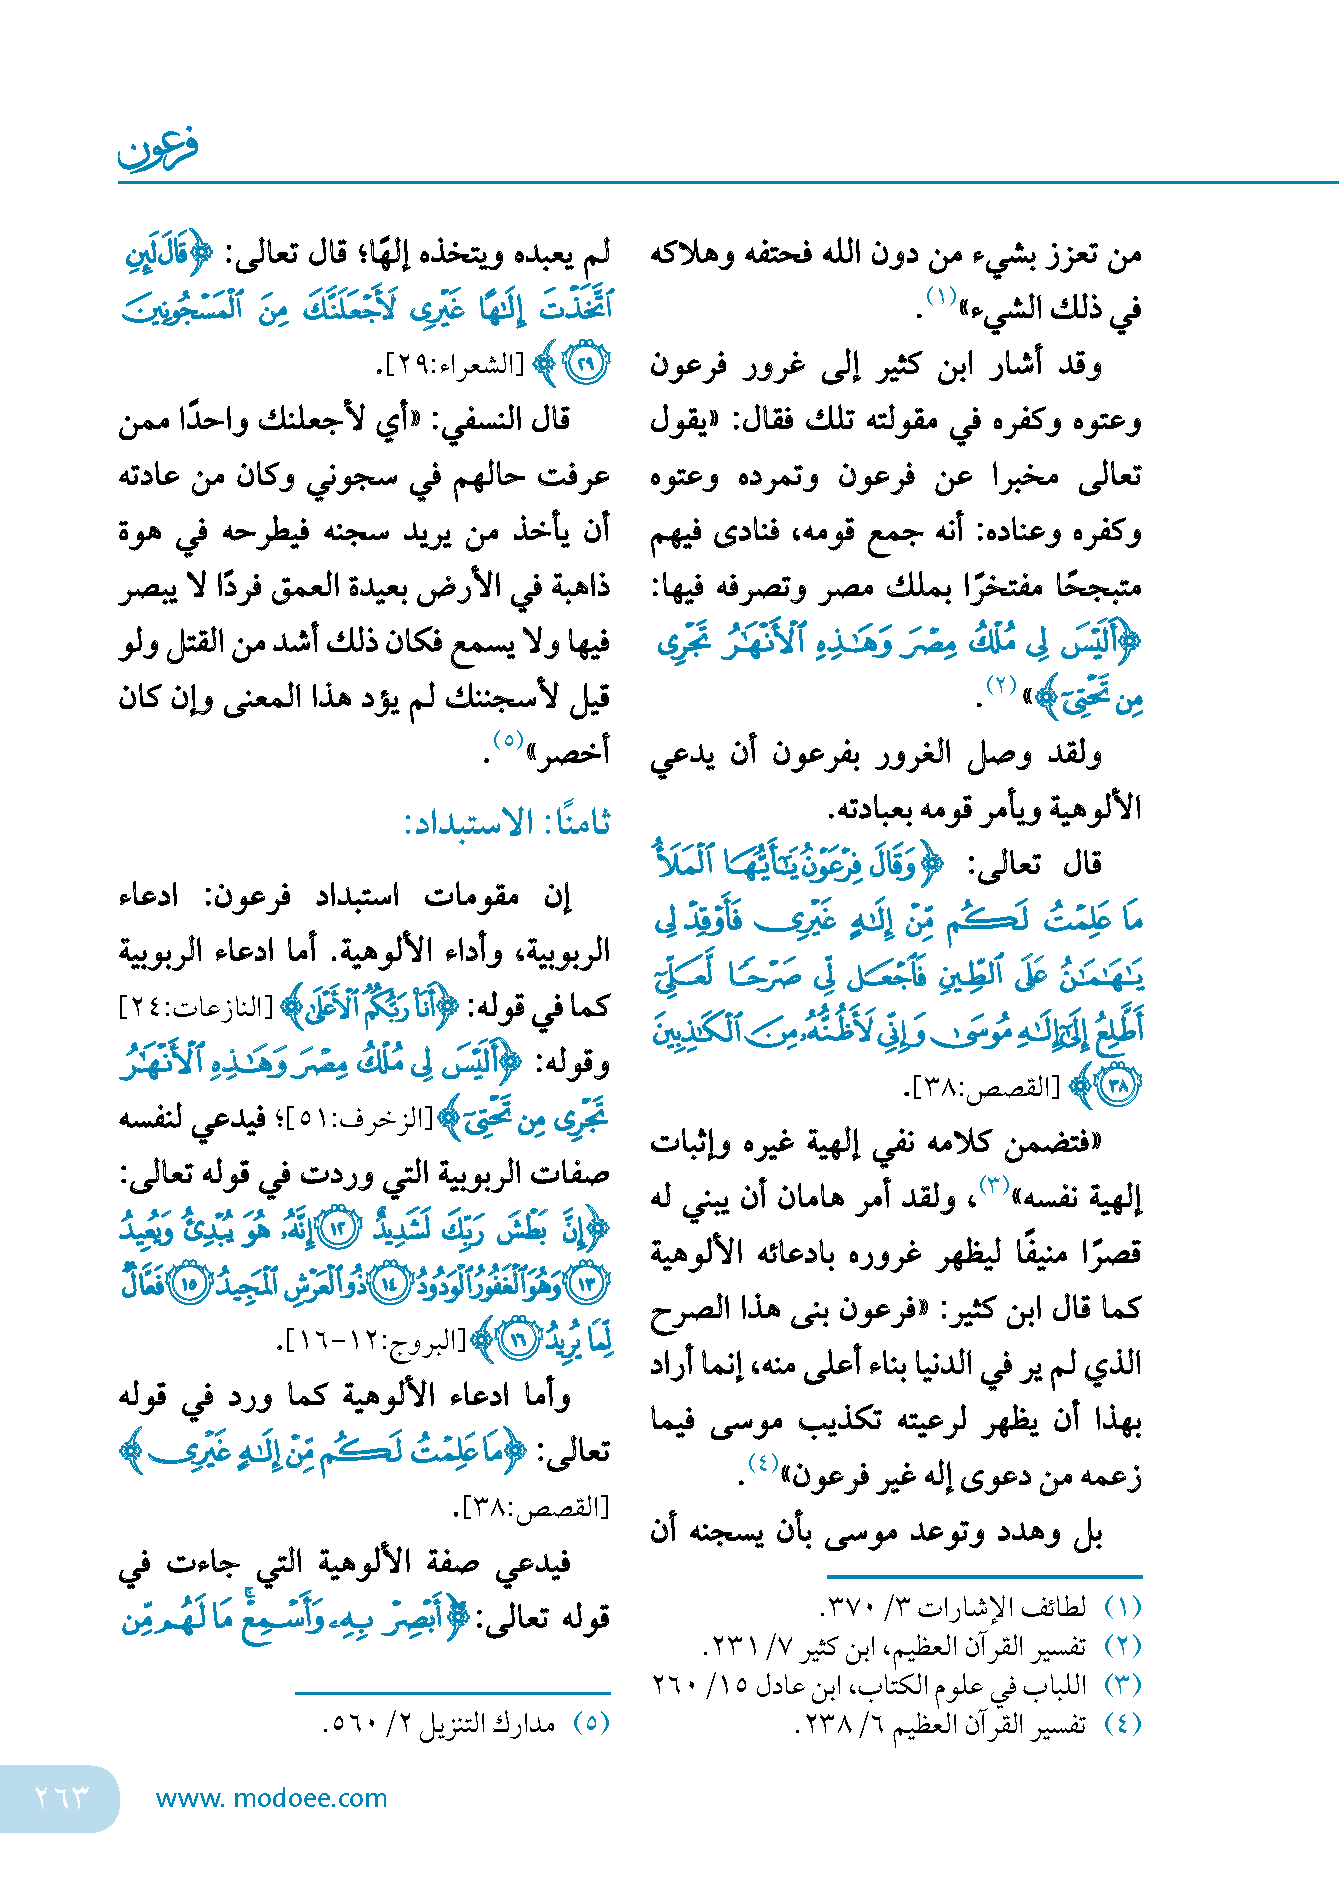 فرعون
من تعزز بشيء من دون الله فحتفه وهلاكه
في ذلك الشيء»(١).
وقد أشار ابن كثير إلى غرور فرعون
وعتوه وكفره في مقولته تلك فقال: «يقول
تعالى مخبرا عن فرعون وتمرده وعتوه
وكفره وعناده: أنه جمع قومه، فنادى فيهم
متبجحًا مفتخرًا بملك مصر وتصرفه فيها:
﴿أَلَيْسَ لِي مُلْكُ مِصْرَ وَهَـٰذِهِ ٱلْأَنْهَـٰرُ تَجْرِى
مِن تَحْتِىٓ﴾»(٢).
ولقد وصل الغرور بفرعون أن يدعي
الألوهية ويأمر قومه بعبادته.
قال تعالى: ﴿وَقَالَ فِرْعَوْنُ يَـٰٓأَيُّهَا ٱلْمَلَأُ
مَا عَلِمْتُ لَكُم مِّنْ إِلَـٰهٍ غَيْرِى فَأَوْقِدْ لِى
يَـٰهَـٰمَـٰنُ عَلَى ٱلطِّينِ فَٱجْعَل لِّى صَرْحًا لَّعَلِّىٓ
أَطَّلِعُ إِلَىٰٓ إِلَـٰهِ مُوسَىٰ وَإِنِّى لَأَظُنُّهُۥ مِنَ ٱلْكَـٰذِبِينَ
٣٨﴾ [القصص:٣٨].
«فتضمن كلامه نفي إلهية غيره وإثبات
إلهية نفسه»(٣)، ولقد أمر هامان أن يبني له
قصرًا منيفًا ليظهر غروره بادعائه الألوهية
كما قال ابن كثير: «فرعون بنى هذا الصرح
الذي لم ير في الدنيا بناء أعلى منه، إنما أراد
بهذا أن يظهر لرعيته تكذيب موسى فيما
زعمه من دعوى إله غير فرعون»(٤).
بل وهدد وتوعد موسى بأن يسجنه أن
(١) لطائف الإشارات ٣/ ٣٧٠.
(٢) تفسير القرآن العظيم، ابن كثير ٧/ ٢٣١.
(٣) اللباب في علوم الكتاب، ابن عادل ١٥/ ٢٦٠
(٤) تفسير القرآن العظيم ٦/ ٢٣٨.
لم يعبده ويتخذه إلهًا؛ قال تعالى: ﴿قَالَ لَئِنِ
ٱتَّخَذْتَ إِلَـٰهًا غَيْرِى لَأَجْعَلَنَّكَ مِنَ ٱلْمَسْجُونِينَ
٢٩﴾ [الشعراء:٢٩].
قال النسفي: «أي لأجعلنك واحدًا ممن
عرفت حالهم في سجوني وكان من عادته
أن يأخذ من يريد سجنه فيطرحه في هوة
ذاهبة في الأرض بعيدة العمق فردًا لا يبصر
فيها ولا يسمع فكان ذلك أشد من القتل ولو
قيل لأسجننك لم يؤد هذا المعنى وإن كان
أخصر»(٥).
ثامنًا: الاستبداد:
إن مقومات استبداد فرعون: ادعاء
الربوبية، وأداء الألوهية. أما ادعاء الربوبية
كما في قوله: ﴿أَنَا۠ رَبُّكُمُ ٱلْأَعْلَىٰ﴾ [النازعات:٢٤]
وقوله: ﴿أَلَيْسَ لِى مُلْكُ مِصْرَ وَهَـٰذِهِ ٱلْأَنْهَـٰرُ
تَجْرِى مِن تَحْتِىٓ﴾[الزخرف:٥١]؛ فيدعي لنفسه
صفات الربوبية التي وردت في قوله تعالى:
﴿إِنَّ بَطْشَ رَبِّكَ لَشَدِيدٌ ١٢ إِنَّهُۥ هُوَ يُبْدِئُ وَيُعِيدُ
١٣ وَهُوَ ٱلْغَفُورُ ٱلْوَدُودُ ١٤ ذُو ٱلْعَرْشِ ٱلْمَجِيدُ ١٥ فَعَّالٌ
لِّمَا يُرِيدُ ١٦﴾[البروج:١٢-١٦].
وأما ادعاء الألوهية كما ورد في قوله
تعالى: ﴿مَا عَلِمْتُ لَكُم مِّنْ إِلَـٰهٍ غَيْرِى﴾
[القصص:٣٨].
فيدعي صفة الألوهية التي جاءت في
قوله تعالى: ﴿أَبْصِرْ بِهِۦ وَأَسْمِعْ ۚ مَا لَهُم مِّن
(٥) مدارك التنزيل ٢/ ٥٦٠.
www. modoee.com
٢٦٣